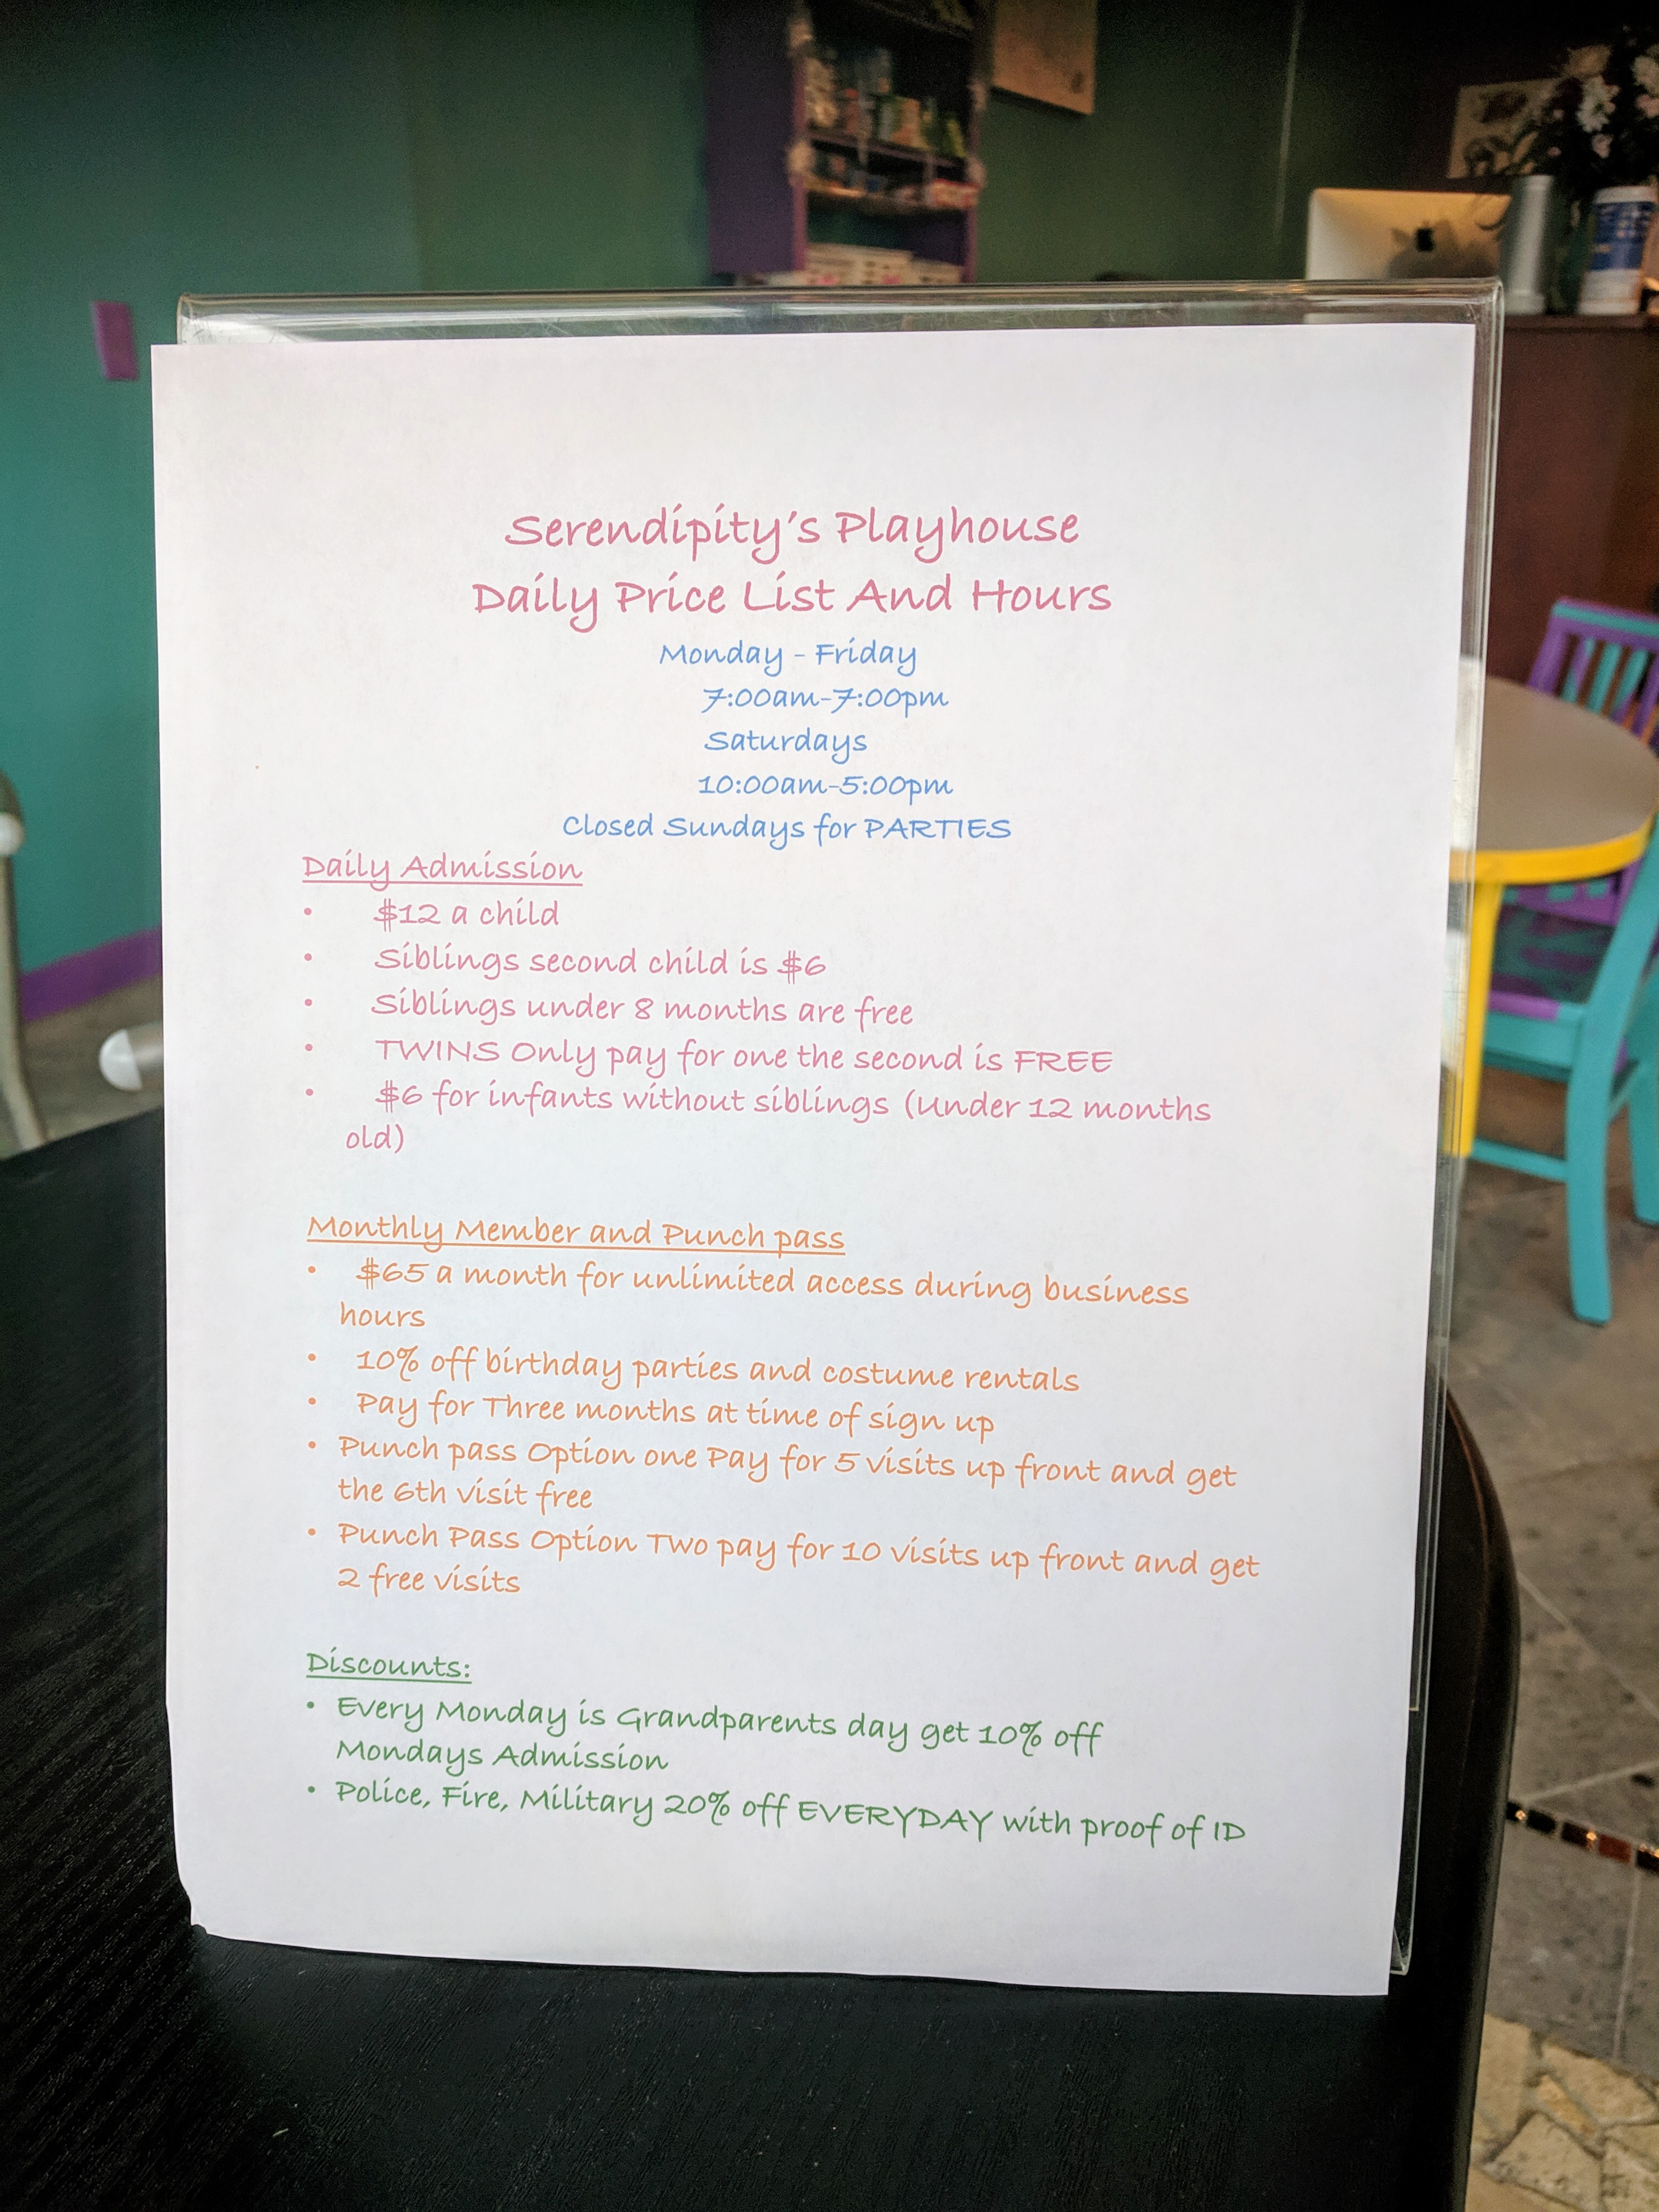 Serendipity's Playhouse
Daily Price List And Hours
Monday - Friday
7:00am-7:00pm
Saturdays
10:00am-5:00pm
Closed Sundays for PARTIES
Daily Admission
• $12 a child
• Siblings second child is $6
• Siblings under 8 months are free
• TWINS Only pay for one the second is FREE
• $6 for infants without siblings (Under 12 months
old)
Monthly Member and Punch pass
• $65 a month for unlimited access during business
hours
• 10% off birthday parties and costume rentals
• Pay for Three months at time of sign up
• Punch pass Option one Pay for 5 visits up front and get
the 6th visit free
• Punch Pass Option Two pay for 10 visits up front and get
2 free visits
Discounts:
• Every Monday is Grandparents day get 10% off
Mondays Admission
• Police, Fire, Military 20% off EVERYDAY with proof of ID